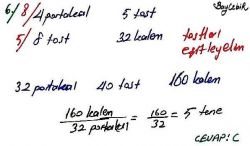 Baylebik
6/ 8/ 4 portakal 5 tost
5/ 8 tost 32 kalem tostları
eşitleyelim
32 portakal 40 tost 160 kalem
160 kalem / 32 portakal = 160 / 32 = 5 tene
CEVAP: C